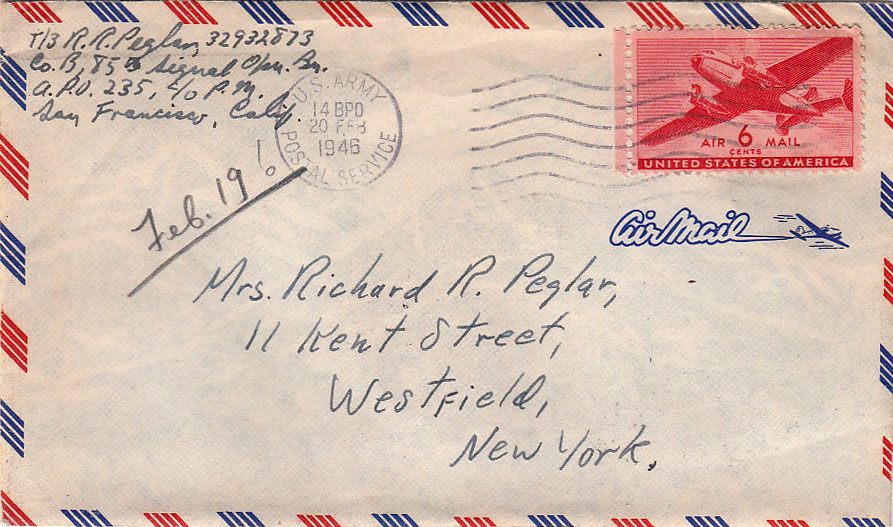 T/3 R.R. Peglar, 32932873
Co. B, 85th Signal Opn. Bn.
A.P.O. 235, c/o P.M.
San Francisco, Calif.
U.S. ARMY
14 BPO
20 FEB
1946
POSTAL SERVICE
AIR 6 MAIL
CENTS
UNITED STATES OF AMERICA
Feb. 19!
Air Mail
Mrs. Richard R. Peglar,
11 Kent Street,
Westfield,
New York.